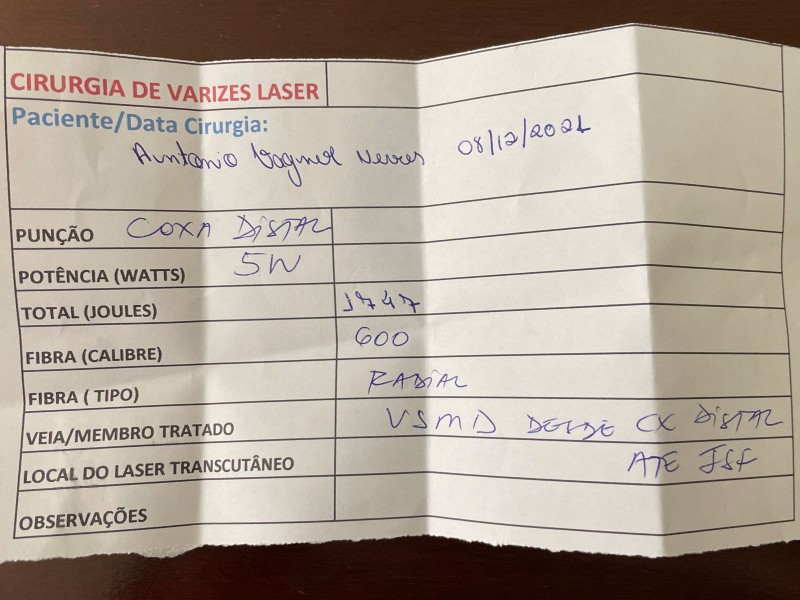 CIRURGIA DE VARIZES LASER
Paciente/Data Cirurgia:
Auntonio Vagner Neves 08/12/2021
PUNÇÃO COXA DISTAL
POTÊNCIA (WATTS) 5W
TOTAL (JOULES) 1747
FIBRA (CALIBRE) 600
FIBRA ( TIPO) RADIAL
VEIA/MEMBRO TRATADO VSMD DESDE CX DISTAL
LOCAL DO LASER TRANSCUTÂNEO ATE JSF
OBSERVAÇÕES